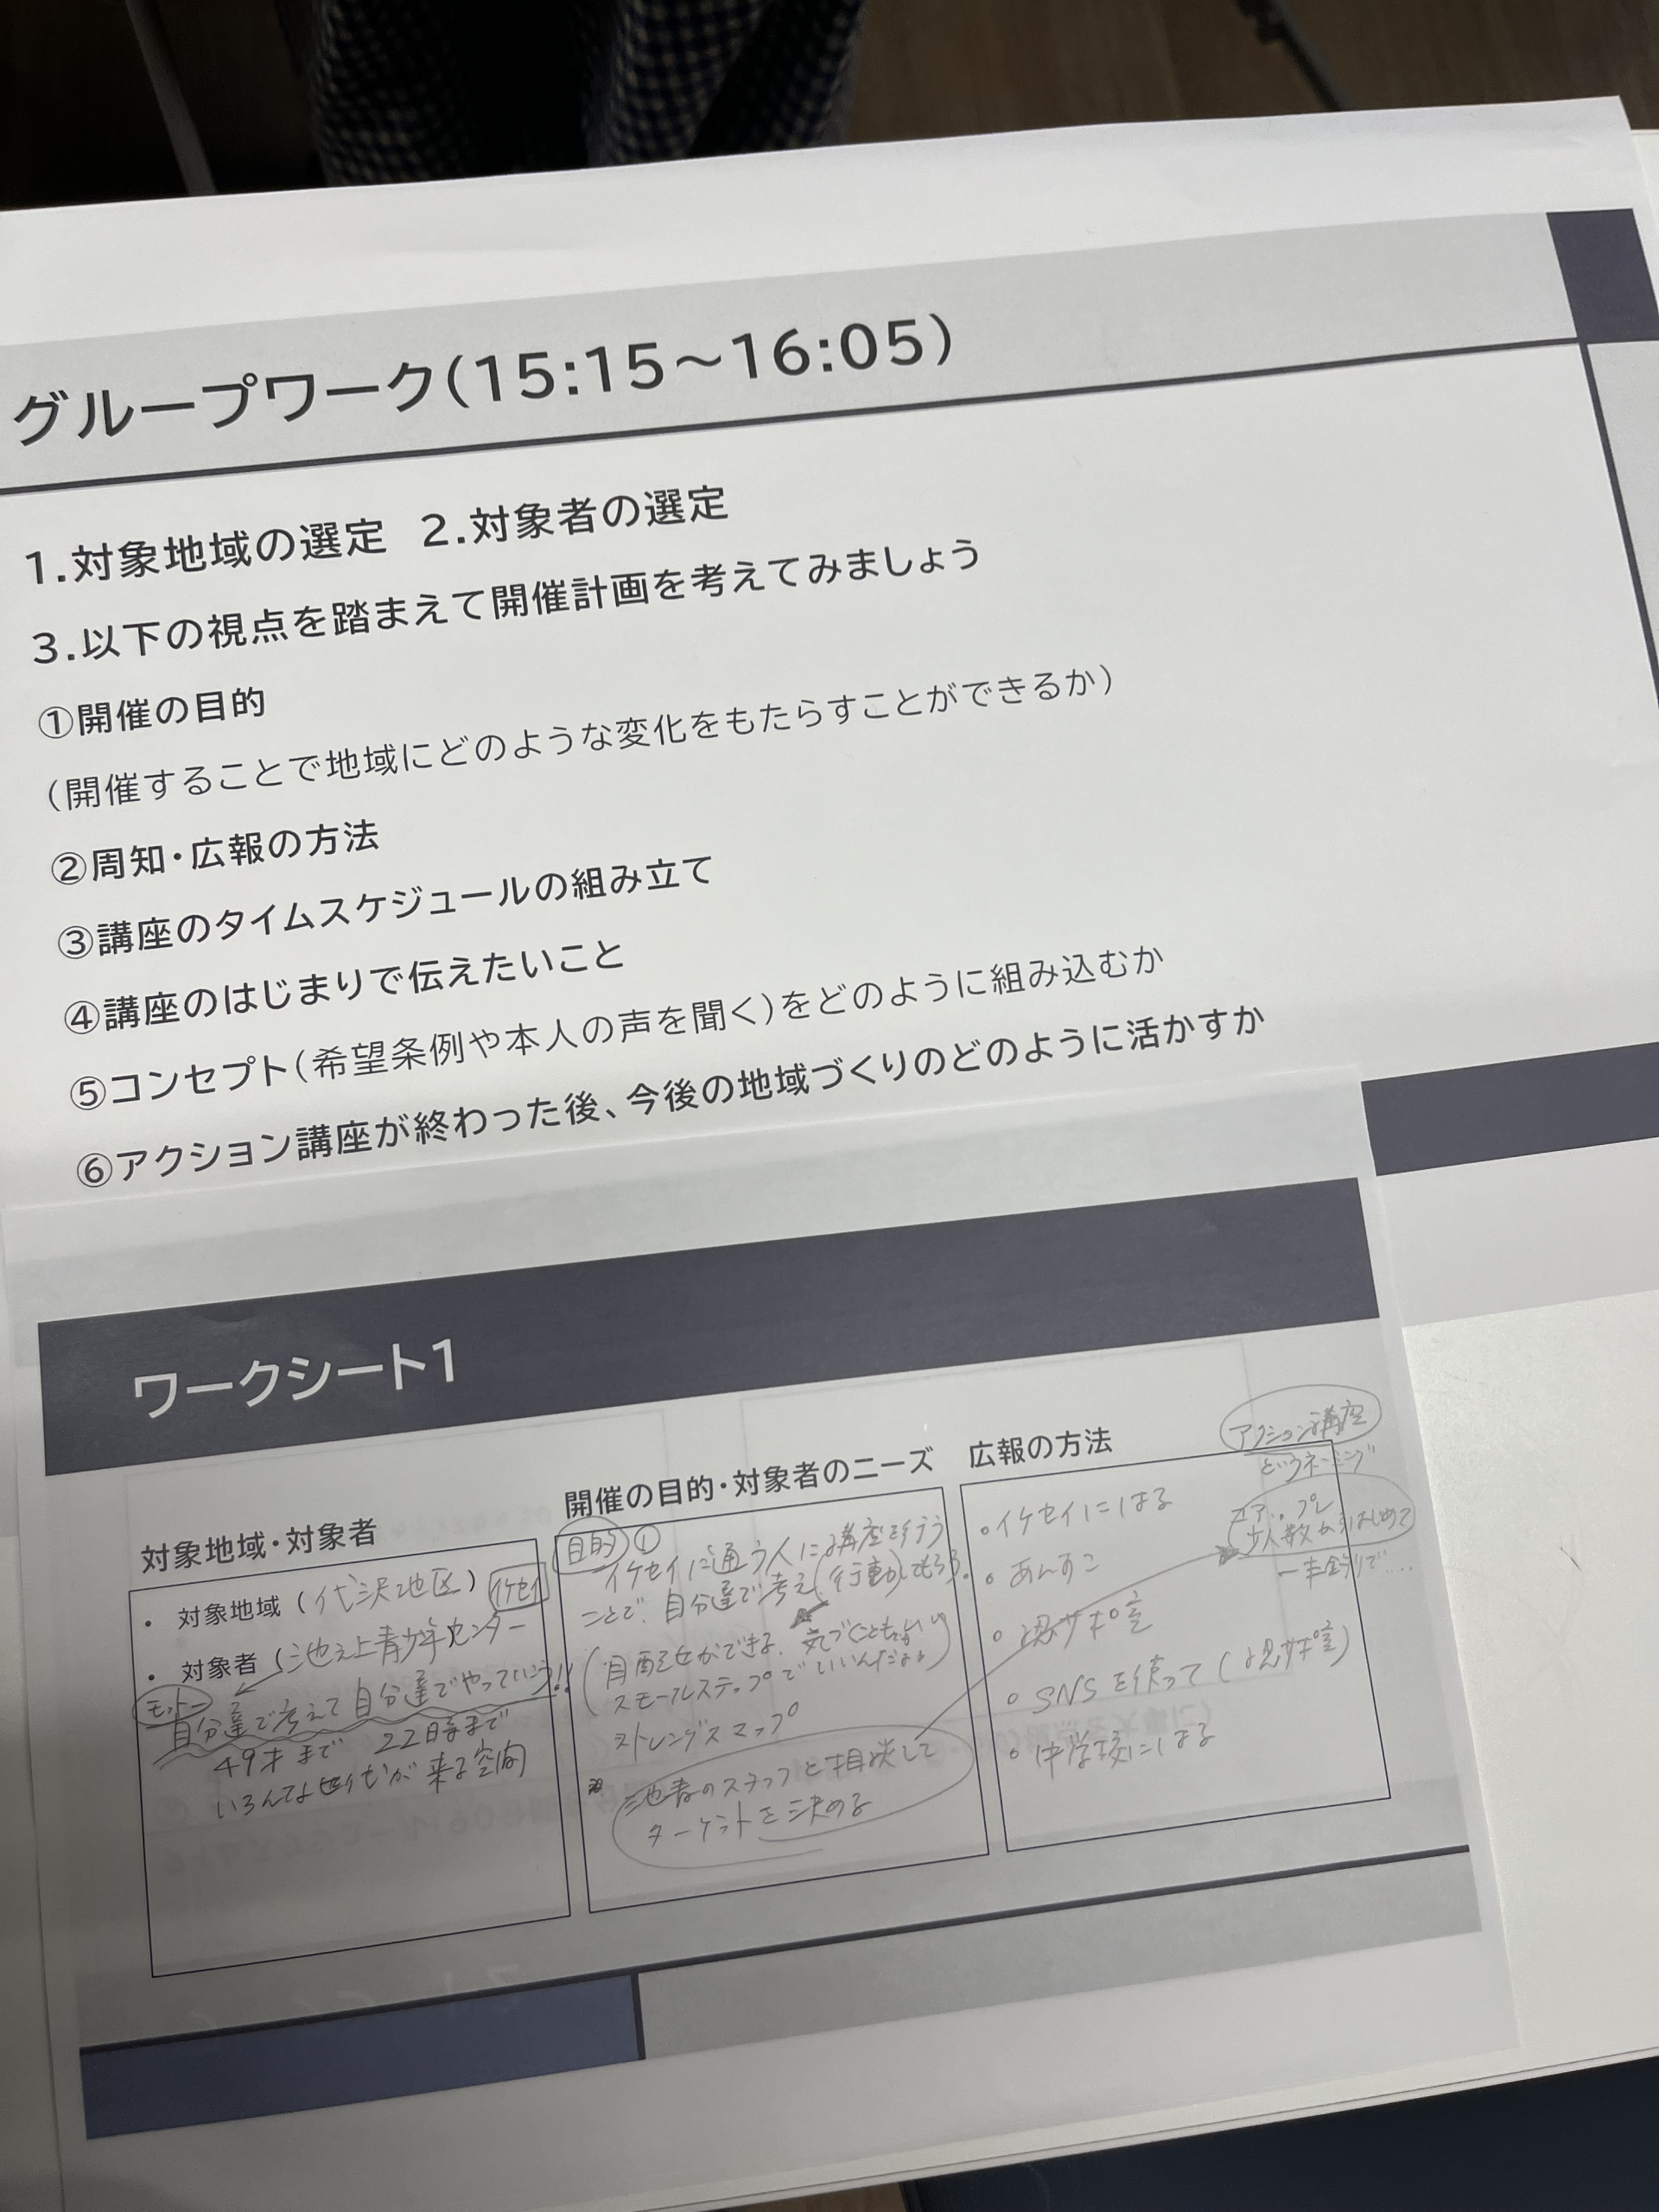 グループワーク(15:15～16:05)
1.対象地域の選定 2.対象者の選定
3.以下の視点を踏まえて開催計画を考えてみましょう
①開催の目的
(開催することで地域にどのような変化をもたらすことができるか)
②周知・広報の方法
③講座のタイムスケジュールの組み立て
④講座のはじまりで伝えたいこと
⑤コンセプト(希望条例や本人の声を聞く)をどのように組み込むか
⑥アクション講座が終わった後、今後の地域づくりのどのように活かすか
ワークシート1
対象地域・対象者
・ 対象地域(代沢地区) イケセイ
・ 対象者(池之上青少年センター
モットー
自分達で考えて自分達でやっていこう!!
49才まで 22時まで
いろんな世代が来る空間
開催の目的・対象者のニーズ
目的 ①
イケセイに通う人に講座を行う
ことで、自分達で考え(行動)してもらう。
(目配せができる、気づくこともよい
スモールステップでいいんだよ。)
ストレングスマップ
池青のスタッフと相談して
ターゲットを決める
広報の方法
・イケセイにはる
・あんすこ
・認サポ室
・SNSを使って(認サポ室)
・中学校にはる
アクション講座
というネーミング
プレ
少人数からはじめて
一本釣りで....